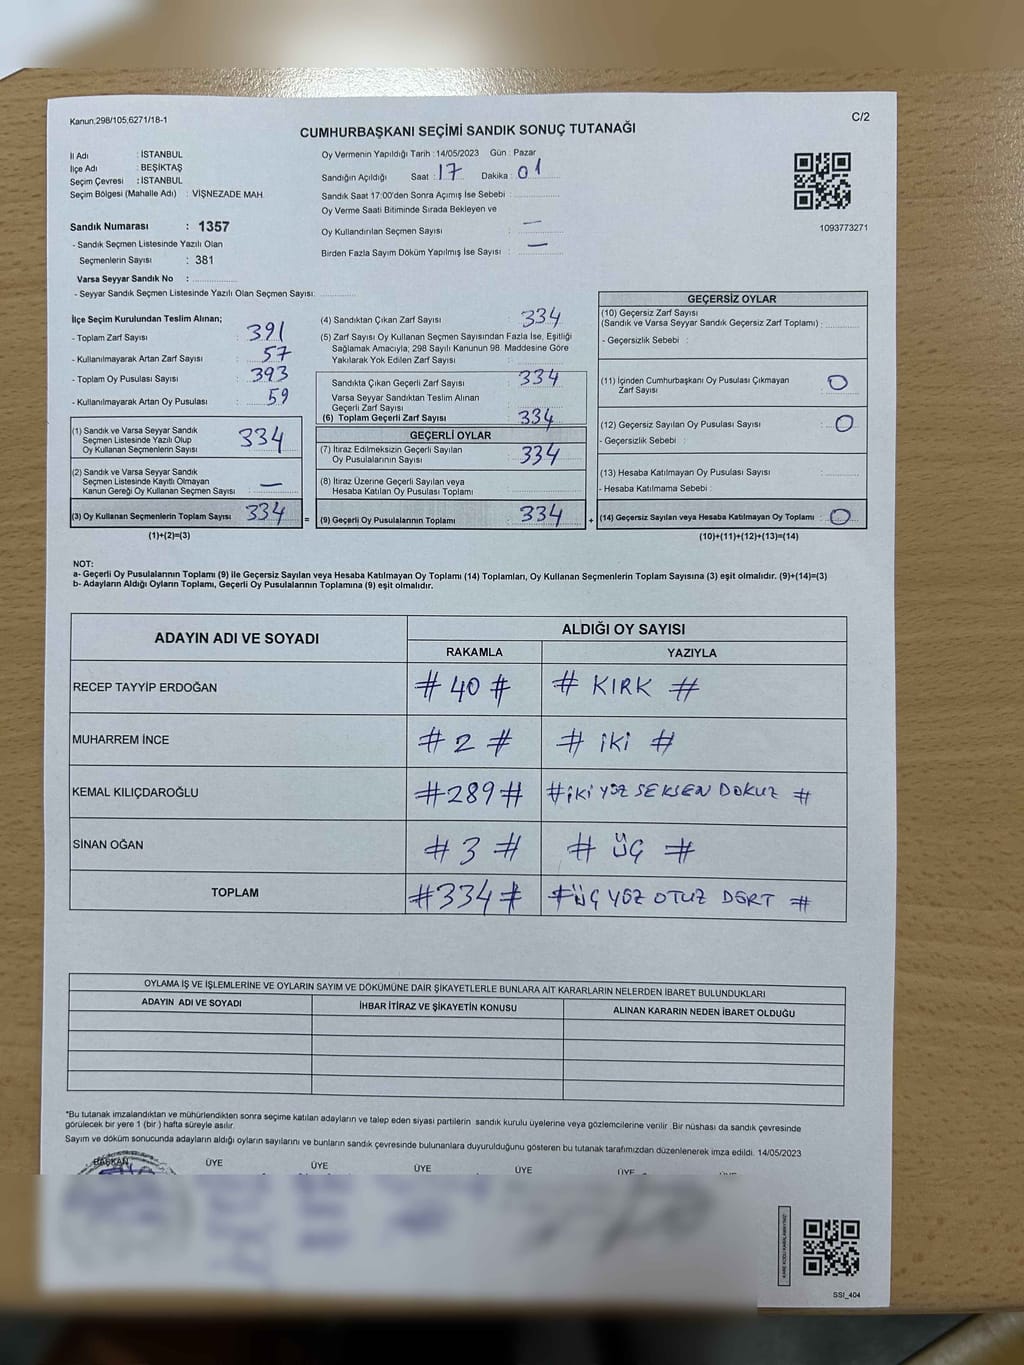 Kanun;298/105;6271/18-1
C/2
CUMHURBAŞKANI SEÇİMİ SANDIK SONUÇ TUTANAĞI
İl Adı : İSTANBUL
İlçe Adı : BEŞİKTAŞ
Seçim Çevresi : İSTANBUL
Seçim Bölgesi (Mahalle Adı) : VİŞNEZADE MAH.
Oy Vermenin Yapıldığı Tarih : 14/05/2023 Gün : Pazar
Sandığın Açıldığı Saat : 17 Dakika : 01
Sandık Saat 17:00'den Sonra Açımış İse Sebebi :
Oy Verme Saati Bitiminde Sırada Bekleyen ve
Oy Kullandırılan Seçmen Sayısı : —
Birden Fazla Sayım Döküm Yapılmış İse Sayısı : —
1093773271
Sandık Numarası : 1357
- Sandık Seçmen Listesinde Yazılı Olan
Seçmenlerin Sayısı : 381
Varsa Seyyar Sandık No :
- Seyyar Sandık Seçmen Listesinde Yazılı Olan Seçmen Sayısı:
İlçe Seçim Kurulundan Teslim Alınan;
- Toplam Zarf Sayısı : 391
- Kullanılmayarak Artan Zarf Sayısı : 57
- Toplam Oy Pusulası Sayısı : 393
- Kullanılmayarak Artan Oy Pusulası : 59
(1) Sandık ve Varsa Seyyar Sandık
Seçmen Listesinde Yazılı Olup
Oy Kullanan Seçmenlerin Sayısı 334
(2) Sandık ve Varsa Seyyar Sandık
Seçmen Listesinde Kayıtlı Olmayan
Kanun Gereği Oy Kullanan Seçmen Sayısı —
(3) Oy Kullanan Seçmenlerin Toplam Sayısı 334
(1)+(2)=(3)
(4) Sandıktan Çıkan Zarf Sayısı : 334
(5) Zarf Sayısı Oy Kullanan Seçmen Sayısından Fazla İse, Eşitliği
Sağlamak Amacıyla; 298 Sayılı Kanunun 98. Maddesine Göre
Yakılarak Yok Edilen Zarf Sayısı :
Sandıkta Çıkan Geçerli Zarf Sayısı : 334
Varsa Seyyar Sandıktan Teslim Alınan
Geçerli Zarf Sayısı :
(6) Toplam Geçerli Zarf Sayısı : 334
GEÇERLİ OYLAR
(7) İtiraz Edilmeksizin Geçerli Sayılan
Oy Pusulalarının Sayısı : 334
(8) İtiraz Üzerine Geçerli Sayılan veya
Hesaba Katılan Oy Pusulası Toplamı :
= (9) Geçerli Oy Pusulalarının Toplamı : 334
GEÇERSİZ OYLAR
(10) Geçersiz Zarf Sayısı
(Sandık ve Varsa Seyyar Sandık Geçersiz Zarf Toplamı) :
- Geçersizlik Sebebi :
(11) İçinden Cumhurbaşkanı Oy Pusulası Çıkmayan
Zarf Sayısı : 0
(12) Geçersiz Sayılan Oy Pusulası Sayısı : 0
- Geçersizlik Sebebi :
(13) Hesaba Katılmayan Oy Pusulası Sayısı :
- Hesaba Katılmama Sebebi :
+ (14) Geçersiz Sayılan veya Hesaba Katılmayan Oy Toplamı : 0
(10)+(11)+(12)+(13)=(14)
NOT:
a- Geçerli Oy Pusulalarının Toplamı (9) ile Geçersiz Sayılan veya Hesaba Katılmayan Oy Toplamı (14) Toplamları, Oy Kullanan Seçmenlerin Toplam Sayısına (3) eşit olmalıdır. (9)+(14)=(3)
b- Adayların Aldığı Oyların Toplamı, Geçerli Oy Pusulalarının Toplamına (9) eşit olmalıdır.
ADAYIN ADI VE SOYADI
ALDIĞI OY SAYISI
RAKAMLA YAZIYLA
RECEP TAYYİP ERDOĞAN # 40 # # KIRK #
MUHARREM İNCE # 2 # # İKİ #
KEMAL KILIÇDAROĞLU #289# #İKİ YÜZ SEKSEN DOKUZ #
SİNAN OĞAN # 3 # # ÜÇ #
TOPLAM #334# #ÜÇ YÜZ OTUZ DÖRT #
OYLAMA İŞ VE İŞLEMLERİNE VE OYLARIN SAYIM VE DÖKÜMÜNE DAİR ŞİKAYETLERLE BUNLARA AİT KARARLARIN NELERDEN İBARET BULUNDUKLARI
ADAYIN ADI VE SOYADI İHBAR İTİRAZ VE ŞİKAYETİN KONUSU ALINAN KARARIN NEDEN İBARET OLDUĞU
*Bu tutanak imzalandıktan ve mühürlendikten sonra seçime katılan adayların ve talep eden siyasi partilerin sandık kurulu üyelerine veya gözlemcilerine verilir .Bir nüshası da sandık çevresinde
görülecek bir yere 1 (bir ) hafta süreyle asılır.
Sayım ve döküm sonucunda adayların aldığı oyların sayılarını ve bunların sandık çevresinde bulunanlara duyurulduğunu gösteren bu tutanak tarafımızdan düzenlenerek imza edildi. 14/05/2023
BAŞKAN ÜYE ÜYE ÜYE ÜYE ÜYE ÜYE
SSI_404